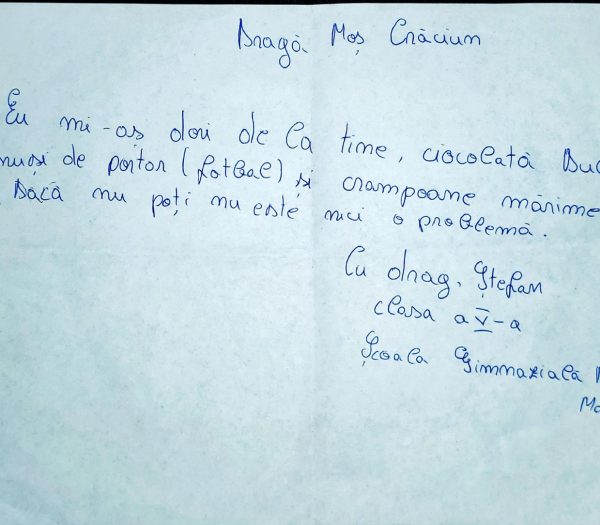 Dragă Moș Crăciun
Eu mi-as dori de la tine, ciocolată
de portar (fotbal) și crampoane mărime
Dacă nu poți nu este nici o problemă.
Cu drag, Ștefan
clasa a V-a
Școala Gimnazială